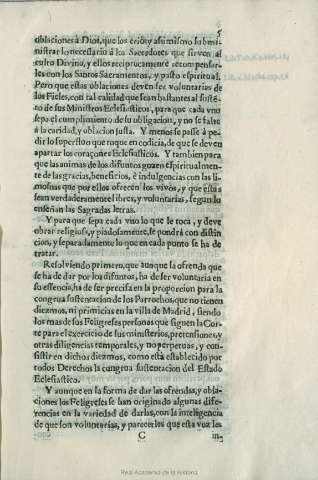 5
oblaciones à Dios, que los crió; y assimismo submi-
nistrar lo necessario à los Sacerdotes que sirven al
culto Divino, y ellos reciprocamente recompensar-
les con los Santos Sacramentos, y pasto espiritual.
Pero que estas oblaciones deven ser voluntarias de
los Fieles, con tal calidad que sean bastantes al susté-
to de sus Ministros Eclesiasticos, para que cada vno
sepa el cumplimiento de su obligacion, y no se falte
à la caridad, y oblacion justa. Y menos se passe à pe-
dir lo superfluo que toque en codicia, de que se deven
apartar los coraçones Eclesiasticos. Y tambien para
que las animas de los difuntos gozen espiritualmen-
te de las gracias, beneficios, è indulgencias con las li-
mosnas que por ellos ofrecen los vivos, y que estas
sean verdaderamente libres, y voluntarias, segun lo
enseñan las Sagradas letras.
Y para que sepa cada vno lo que le toca, y deve
obrar religiosa, y piadosamente, se pondrà con distin
cion, y separadamente lo que en cada punto se ha de
tratar.
Resolviendo primero, que aunque la ofrenda que
se ha de dar por los difuntos, ha de ser voluntaria en
su essencia, ha de ser precisa en la proporcion para la
congrua sustentacion de los Parrochos, que no tienen
diezmos, ni primicias en la villa de Madrid, siendo
los mas de sus Feligreses personas que siguen la Cor-
te para el exercicio de sus ministerios, pretensiones, y
otras diligencias temporales, y no perpetuas, y con-
sistir en dichos diezmos, como està establecido por
todos Derechos la congrua sustentacion del Estado
Eclesiastico.
Y aunque en la forma de dar las ofrendas, y obla-
ciones los Feligreses se han originado algunas dife-
rencias en la variedad de darlas, con la inteligencia
de que son voluntarias, y parecerles que esta voz les
C in-
Real Academia de la Historia